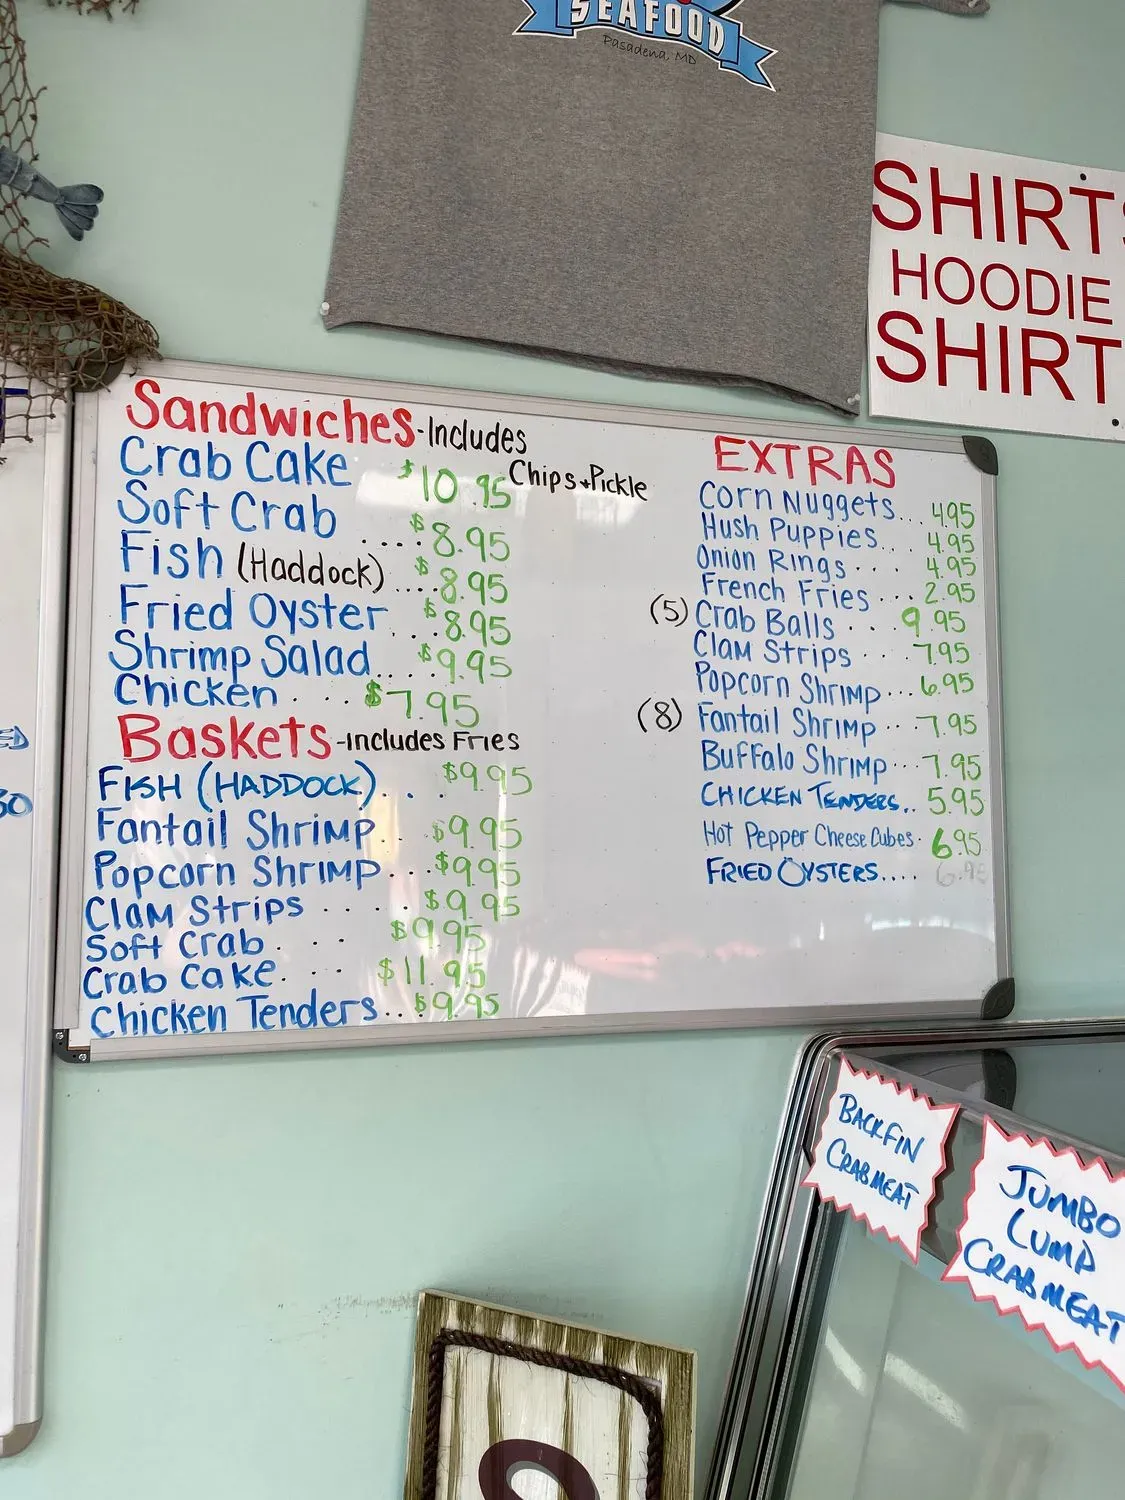 SEAFOOD
Pasadena, MD
SHIRTS
HOODIE
SHIRT
Sandwiches-Includes
Chips+Pickle
Crab Cake $10.95
Soft Crab ....$8.95
Fish (Haddock)....$8.95
Fried Oyster ....$8.95
Shrimp Salad....$9.95
Chicken....$7.95
Baskets-includes Fries
FISH (HADDOCK)... $9.95
Fantail Shrimp.. $9.95
Popcorn Shrimp...$9.95
Clam Strips ..... $9.95
Soft Crab.... $9.95
Crab Cake.... $11.95
Chicken Tenders...$9.95
EXTRAS
Corn Nuggets... 4.95
Hush Puppies.... 4.95
Onion Rings.... 4.95
French Fries... 2.95
(5) Crab Balls ... 9.95
Clam Strips ....7.95
Popcorn Shrimp...6.95
(8) Fantail Shrimp...7.95
Buffalo Shrimp...7.95
CHICKEN TENDERS.. 5.95
Hot Pepper Cheese Cubes. 6.95
FRIED OYSTERS.... 6.95
BACKFIN
CRABMEAT
JUMBO
LUMP
CRABMEAT